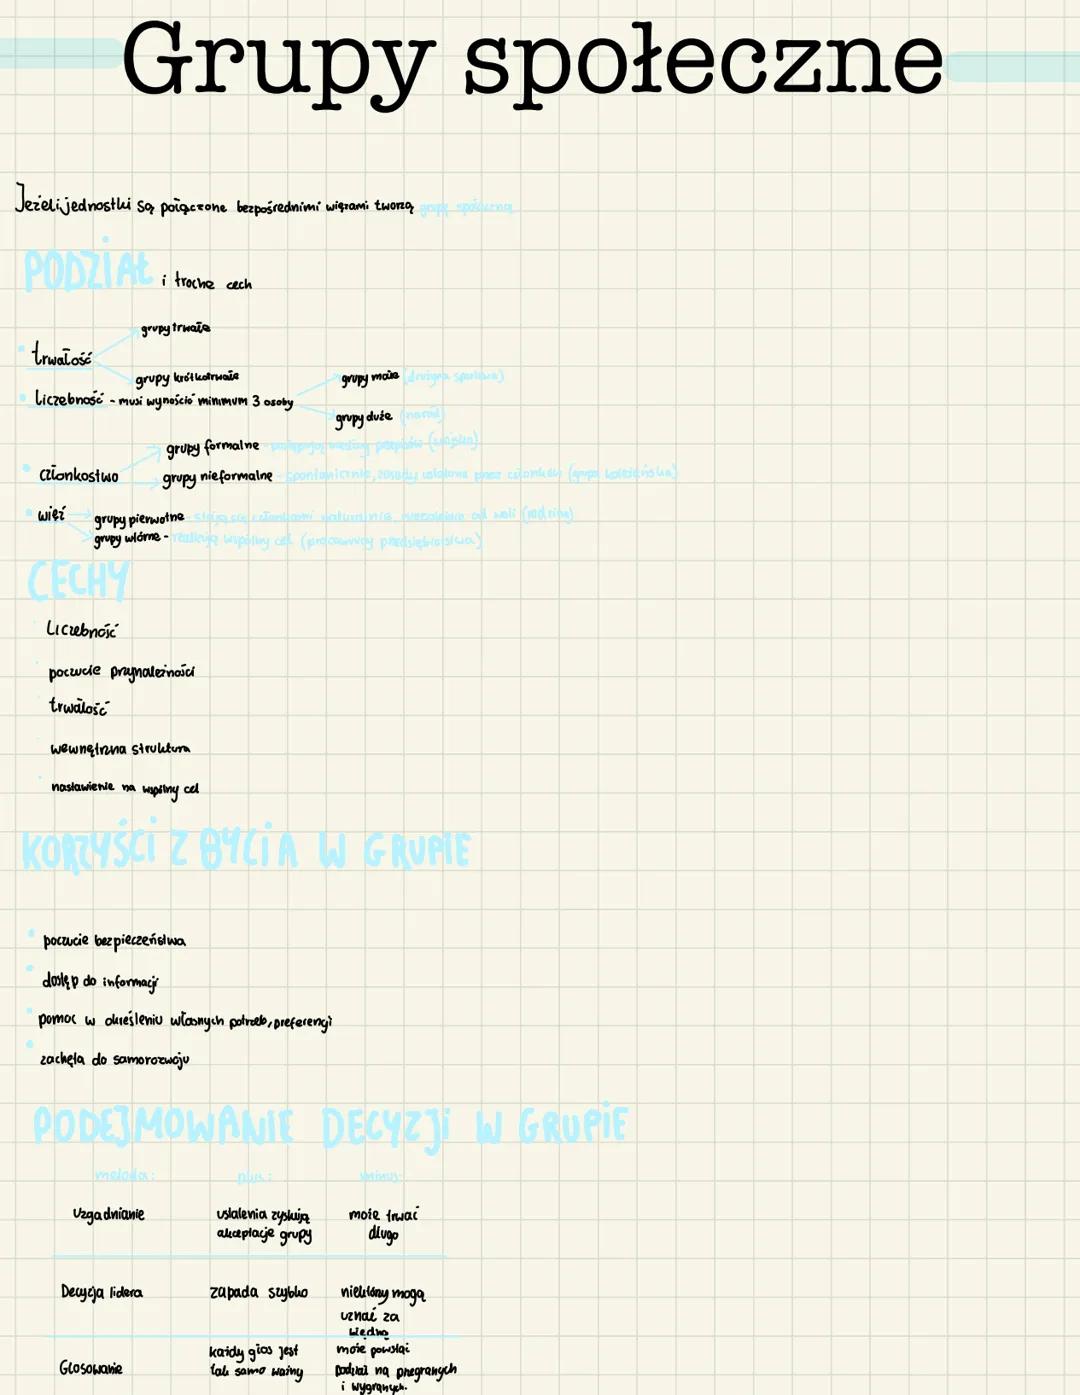 Grupy społeczne
Jeżeli jednostki są połączone bezpośrednimi więzami tworzą grupę społeczną
PODZIAŁ i trochę cech
grupy trwałe
• trwałość
grupy krótkotrwałe
grupy małe (drużyna sportowa)
• liczebność - musi wynosić minimum 3 osoby
grupy duże (naród)
grupy formalne - postępują według przepisów (wojsko)
• członkostwo
grupy nieformalne - spontanicznie, zasady ustalone przez członków (grupa koleżeńska)
• więź
grupy pierwotne - stają się członkami naturalnie, niezależnie od woli (rodzina)
grupy wtórne - realizują wspólny cel (pracownicy przedsiębiorstwa)
CECHY
Liczebność
poczucie przynależności
trwałość
wewnętrzna struktura
nastawienie na wspólny cel
KORZYŚCI Z BYCIA W GRUPIE
• poczucie bezpieczeństwa
• dostęp do informacji
• pomoc w określeniu własnych potrzeb, preferencji
• zachęta do samorozwoju
PODEJMOWANIE DECYZJI W GRUPIE
metoda: plus: minus:
Uzgadnianie ustalenia zyskują może trwać
akceptację grupy długo
Decyzja lidera zapada szybko niektórzy mogą
uznać za
błędną
każdy głos jest może powstać
Głosowanie tak samo ważny podział na przegranych
i wygranych.